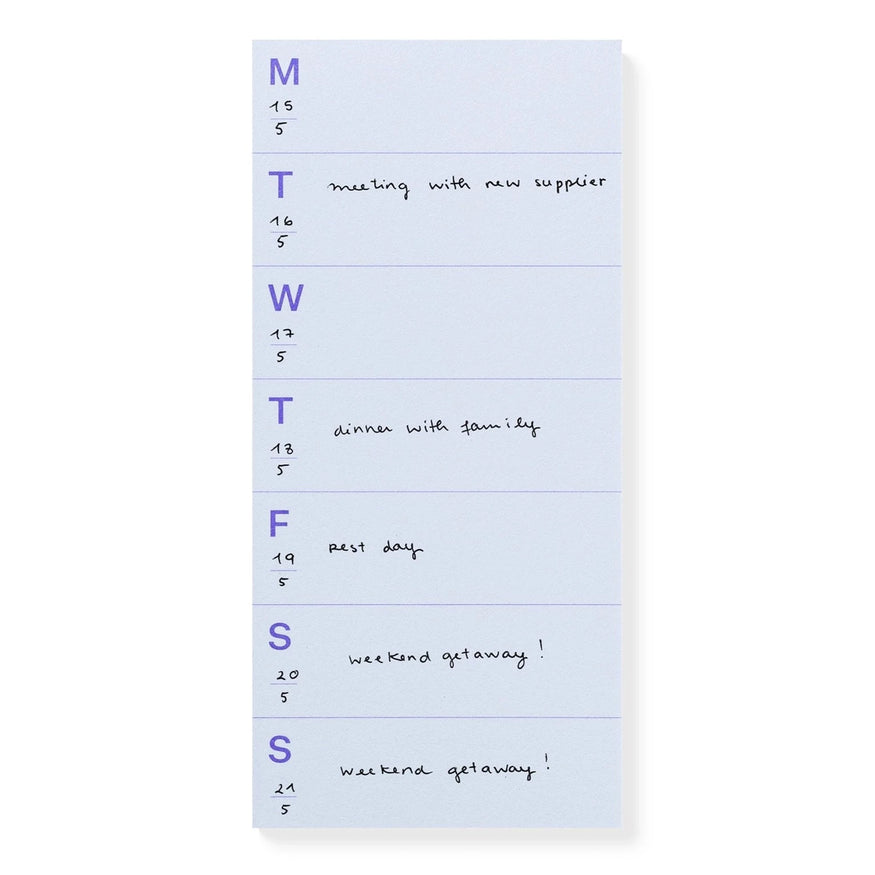 M
15
5
T
meeting with new supplier
16
5
W
17
5
T
dinner with family
18
5
F
rest day
19
5
S
weekend getaway!
20
5
S
weekend getaway!
21
5